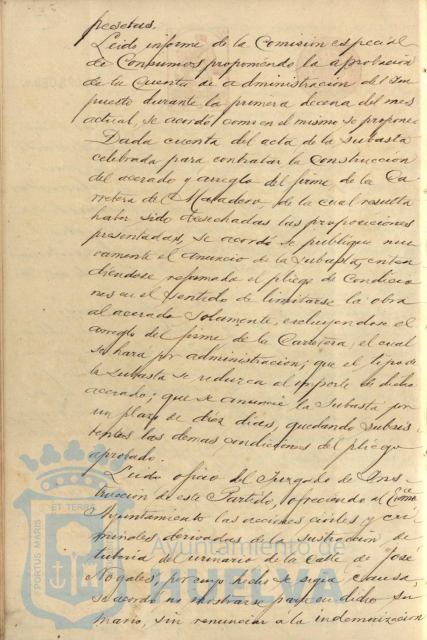 pesetas.
Leido informe de la Comision especial
de Consumos proponiendo la aprobacion
de la Cuenta de administracion del Im
puesto durante la primera decena del mes
actual, se acordó como en el mismo se propone
Dada cuenta del acta de la subasta
celebrada para contratar la Construccion
del acerado y arreglo del firme de la Ca
rretera del Matadero, de la cual resulta
haber sido desechadas las proposiciones
presentadas, se acordó se publique nue
vamente el anuncio de la subasta, enten
diendose reformado el pliego de Condicio
nes en el sentido de limitarse la obra
al acerado solamente, excluyendose el
arreglo del firme de la Carretera, el cual
se hará por administracion; que el tipo de
la Subasta se reduzca al importe de dicho
acerado; que se anuncie la Subasta por
un plazo de diez dias, quedando subsis
tentes las demas condiciones del pliego
aprobado.
Leido oficio del Juzgado de Ins
truccion de este Partido, ofreciendo al Excmo
Ayuntamiento las acciones civiles y cri
minales derivadas de la sustraccion de
tuberia del urinario de la Calle de José
Nogales, por cuyo hecho se sigue causa,
se acordó no mostrarse parte en dicho su
mario, sin renunciar a la indemnizacion
PORTUS MARIS ET TERRÆ
Ayuntamiento de
HUELVA